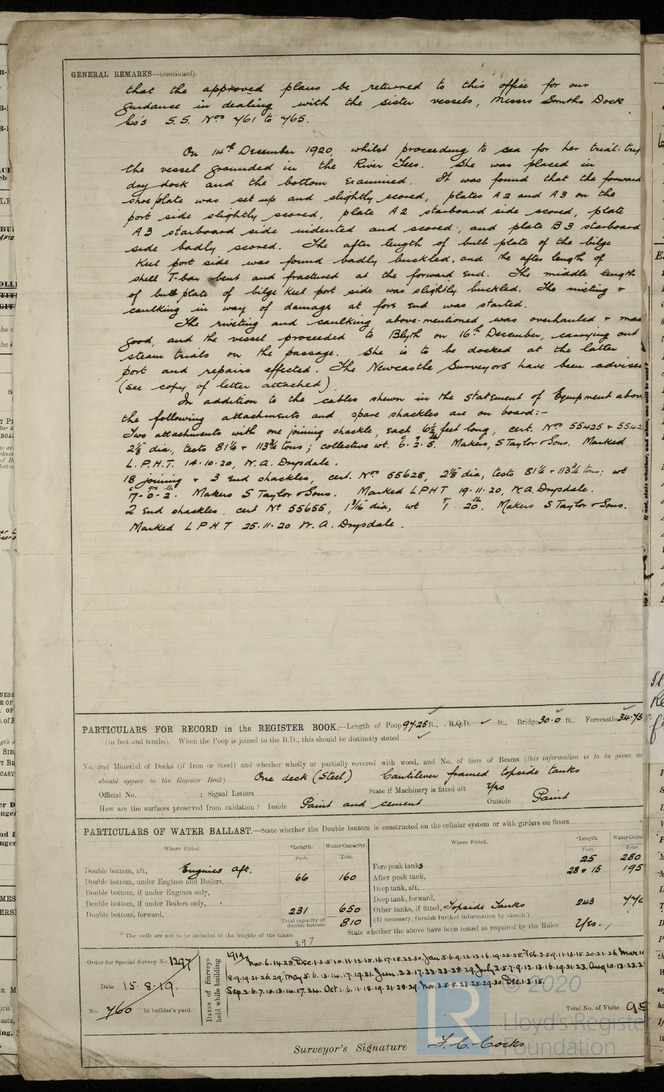 GENERAL REMARKS—(continued).
that the approved plans be returned to this office for our
guidance in dealing with the sister vessels, Messrs Smiths Dock
Co's S.S. Nos 761 to 765.
On 14th December 1920, whilst proceeding to sea for her trial trip
the vessel grounded in the River Tees. She was placed in
dry dock and the bottom examined. It was found that the forward
shoe plate was set up and slightly scored, plates A2 and A3 on the
port side slightly scored, plate A2 starboard side scored, plate
A3 starboard side indented and scored, and plate B3 starboard
side badly scored. The after length of bulb plate of the bilge
keel port side was found badly buckled, and the after length of
shell T-bar bent and fractured at the forward end. The middle length
of bulb plate of bilge keel port side was slightly buckled. The riveting &
caulking in way of damage at fore end was started.
The riveting and caulking above mentioned was overhauled & ma
good, and the vessel proceeded to Blyth on 16th December, carrying out
steam trials on the passage. She is to be docked at the latter
port and repairs effected. The Newcastle Surveyors have been advise
(see copy of letter attached)
In addition to the cables shewn in the Statement of Equipment above
the following attachments and spare shackles are on board:-
Two attachments with one joining shackle, each 6½ feet long, cert. Nos 55425 & 5542
2⅛ dia, tests 81¼ & 113¾ tons; collective wt. 6. 2. 5. Makers, S Taylor & Sons. Marked
L.P.H.T. 14.10.20, W.A. Drysdale.
18 joining & 3 End shackles, cert. No 55628, 2⅛ dia, tests 81¼ & 113¾ tons. wt
17-0-2. Makers S Taylor & Sons. Marked LPHT 19.11.20, W.A. Drysdale.
2 End shackles cert No 55655, 1 9/16 dia, wt 1. 20. Makers S Taylor & Sons.
Marked L P H T 25.11.20 W. A. Drysdale.
PARTICULARS FOR RECORD in the REGISTER BOOK.—Length of Poop 97.25 ft., R.Q.D. ✓ ft., Bridge 30.0 ft., Forecastle 34.75
(in feet and tenths). When the Poop is joined to the B.D., this should be distinctly stated ✓
No. and Material of Decks (if Iron or Steel) and whether wholly or partially covered with wood, and No. of tiers of Beams (this information is to be given as
should appear in the Register Book) One deck (Steel) Cantilever framed topside tanks
Official No. ; Signal Letters State if Machinery is fitted aft Yes
How are the surfaces preserved from oxidation? Inside Paint and cement Outside Paint
PARTICULARS OF WATER BALLAST.—State whether the Double bottom is constructed on the cellular system or with girders on floors
Where Fitted. *Length. Feet. Water Capacity. Tons. Where Fitted. *Length. Feet. Water Capac Tons
Double bottom, aft, Engines aft. 66 160
Double bottom, under Engines and Boilers,
Double bottom, if under Engines only,
Double bottom, if under Boilers only,
Double bottom, forward, 231 650
Total capacity of double bottom 810
Fore peak tanks 25 280
After peak tank, 28 & 15 195
Deep tank, aft,
Deep tank, forward,
Other tanks, if fitted, Topside Tanks 243 770
(If necessary, furnish further information by sketch.)
* The wells are not to be included in the lengths of the tanks.
297
State whether the above have been tested as required by the Rules Yes.
Order for Special Survey No. 1297
Date 15.8.19.
No. 760 in builder's yard.
Dates of Surveys held while building
1919
Total No. of Visits 95
Surveyor's Signature F. C. Cocks
© 2020
Lloyd's Register
Foundation